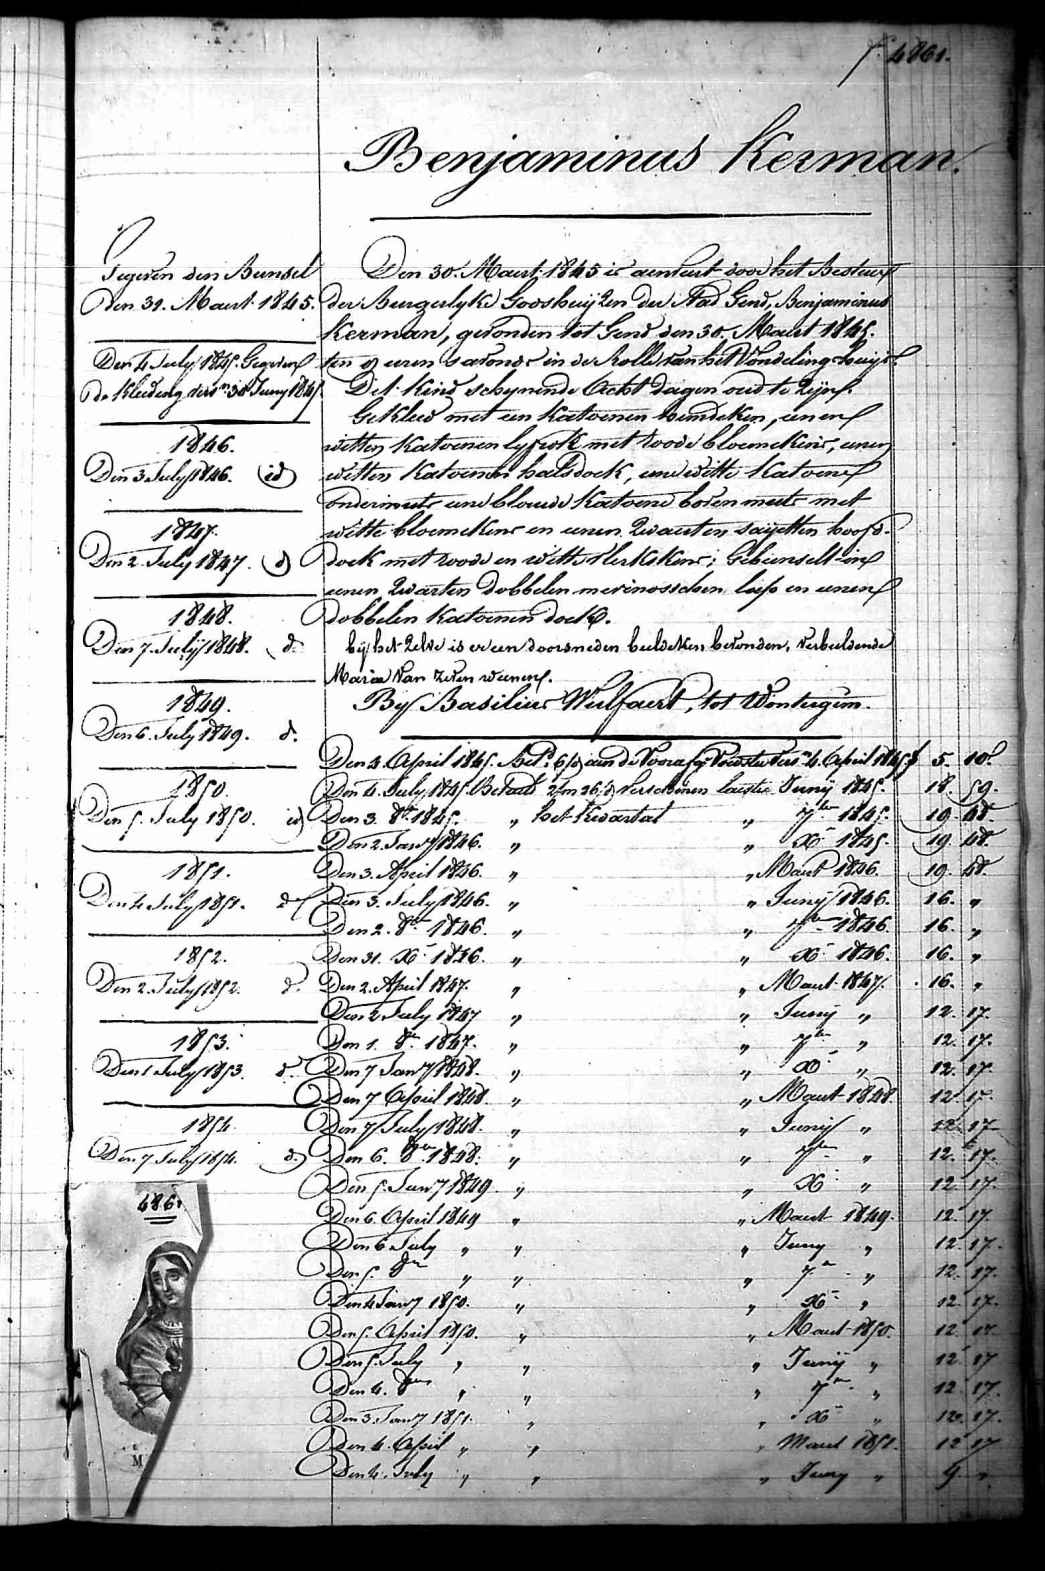 f. 4861.
Benjaminus Kerman.
Gegeven den Bunsel
den 31. Maert 1845.
Den 4 July 1845. Gegeven
de Kleeding vers.n 30 Juny 1845
1846.
Den 3 July 1846. id
1847.
Den 2. July 1847. d
1848.
Den 7. July 1848. d.
1849.
Den 6. July 1849. d.
1850.
Den 5. July 1850. id
1851.
Den 4 July 1851. d
1852.
Den 2. July 1852. d.
1853.
Den 1 July 1853. d.
1854.
Den 7 July 1854. d.
Den 30. Maert 1845 is aenveirt door het Bestuur
der Burgerlyke Godshuyzen der Stad Gend, Benjaminus
Kerman, gevonden tot Gend den 30. Maert 1845.
ten 9 uren savonds in de Rolle van het Vondelinghuys.
Dit Kind schynende Acht dagen oud te zyn.
Gekleed met een Katoenen hemdeken, eenen
witten Katoenen lyfrok met roode bloemekens, eenen
witten Katoenen halsdoek, eene witte Katoene
ondermuts eene blauwe Katoene bovenmuts met
witte bloemekens en eenen zwarten sayetten hoofd-
doek met roode en witte sterkskens; Gebunselt in
eenen zwarten dobbelen merinosschen lap en eenen
dobbelen Katoenen doek.
by het zelve is er een doorsneden beeldeken bevonden, verbeldende
Maria van zeven weenen.
By Basilius Wulfaert, tot Wontergem.
Den 4. April 1845. Bet. 6/0 aan de Voorafg. Voedster vers. 4. April 1845 f 5. 10.
Den 4. July 1845. Betaald 2 m 26 d verschenen laetste Juny 1845. 18. 59.
Den 3. 8er 1845. „ het Kwartal „ 7ber 1845. 19. 48.
Den 2 Janry 1846. „ „ Xr 1845. 19. 48.
Den 3. April 1846. „ „ Maert 1846. 19. 48.
Den 3. July 1846. „ „ Juny 1846. 16. „
Den 2. 8er 1846. „ „ 7ber 1846. 16. „
Den 31. Xr 1846. „ „ Xr 1846. 16. „
Den 2. April 1847. „ „ Maert 1847. 16. „
Den 2 July 1847 „ „ Juny „ 12. 17.
Den 1. 8er 1847. „ „ 7ber „ 12. 17.
Den 7 Janry 1848. „ „ Xr „ 12. 17.
Den 7 April 1848. „ „ Maert 1848 12 17.
Den 7 July 1848. „ „ Juny „ 12. 17
Den 6. 8er 1848. „ „ 7ber „ 12. 17.
Den 5. Janry 1849. „ „ Xr „ 12. 17.
Den 6. April 1849 „ „ Maert 1849. 12. 17.
Den 6 July „ „ „ Juny „ 12. 17.
Den 5. 8er „ „ „ 7er „ 12. 17.
Den 4 Janry 1850. „ „ Xr „ 12. 17.
Den 5. April 1850. „ „ Maert 1850. 12. 17.
Den 5. July „ „ „ Juny „ 12. 17
Den 4. 8er „ „ „ 7er „ 12. 17.
Den 3. Janry 1851. „ „ Xr „ 12. 17.
Den 4. April „ „ „ Maert 1851. 12 17
Den 4. July „ „ „ Juny „ 9 „
4861
M